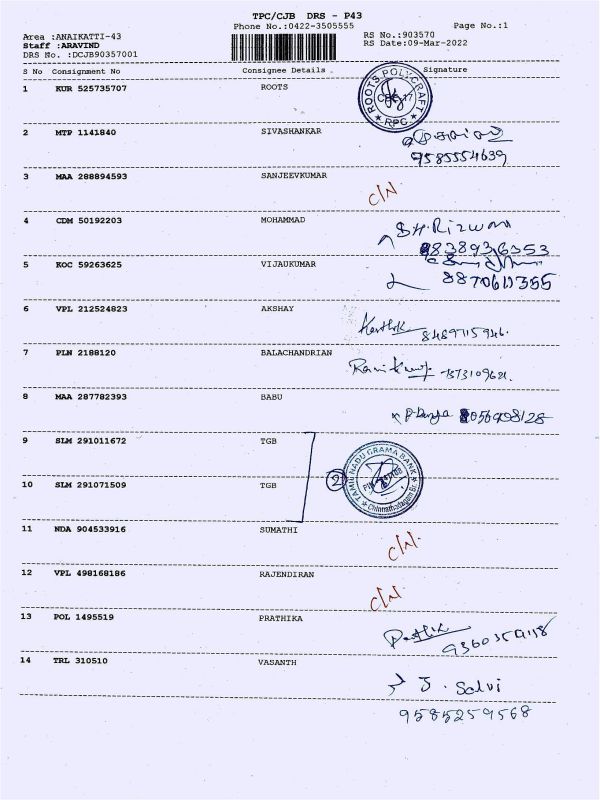 TPC/CJB DRS - P43
Phone No.:0422-3505555
Page No.:1
Area :ANAIKATTI-43
RS No.:903570
Staff :ARAVIND
RS Date:09-Mar-2022
DRS No. :DCJB90357001
S No Consignment No Consignee Details Signature
1 KUR 525735707 ROOTS
ROOTS POLYCRAFT
RPC
2 MTP 1141840 SIVASHANKAR
9585554639
3 MAA 288894593 SANJEEVKUMAR
C/N
4 CDM 50192203 MOHAMMAD
S.H.Rizwan
9838936353
5 KOC 59263625 VIJAUKUMAR
6 VPL 212524823 AKSHAY
Karthik
7 PLN 2188120 BALACHANDRIAN
8 MAA 287782393 BABU
9 SLM 291011672 TGB
10 SLM 291071509 TGB
2
TAMIL NADU GRAMA BANK
Chinnathadagam Br.
11 NDA 904533916 SUMATHI
C/N.
12 VPL 498168186 RAJENDIRAN
C/N.
13 POL 1495519 PRATHIKA
14 TRL 310510 VASANTH
J. Salvi
9585259568